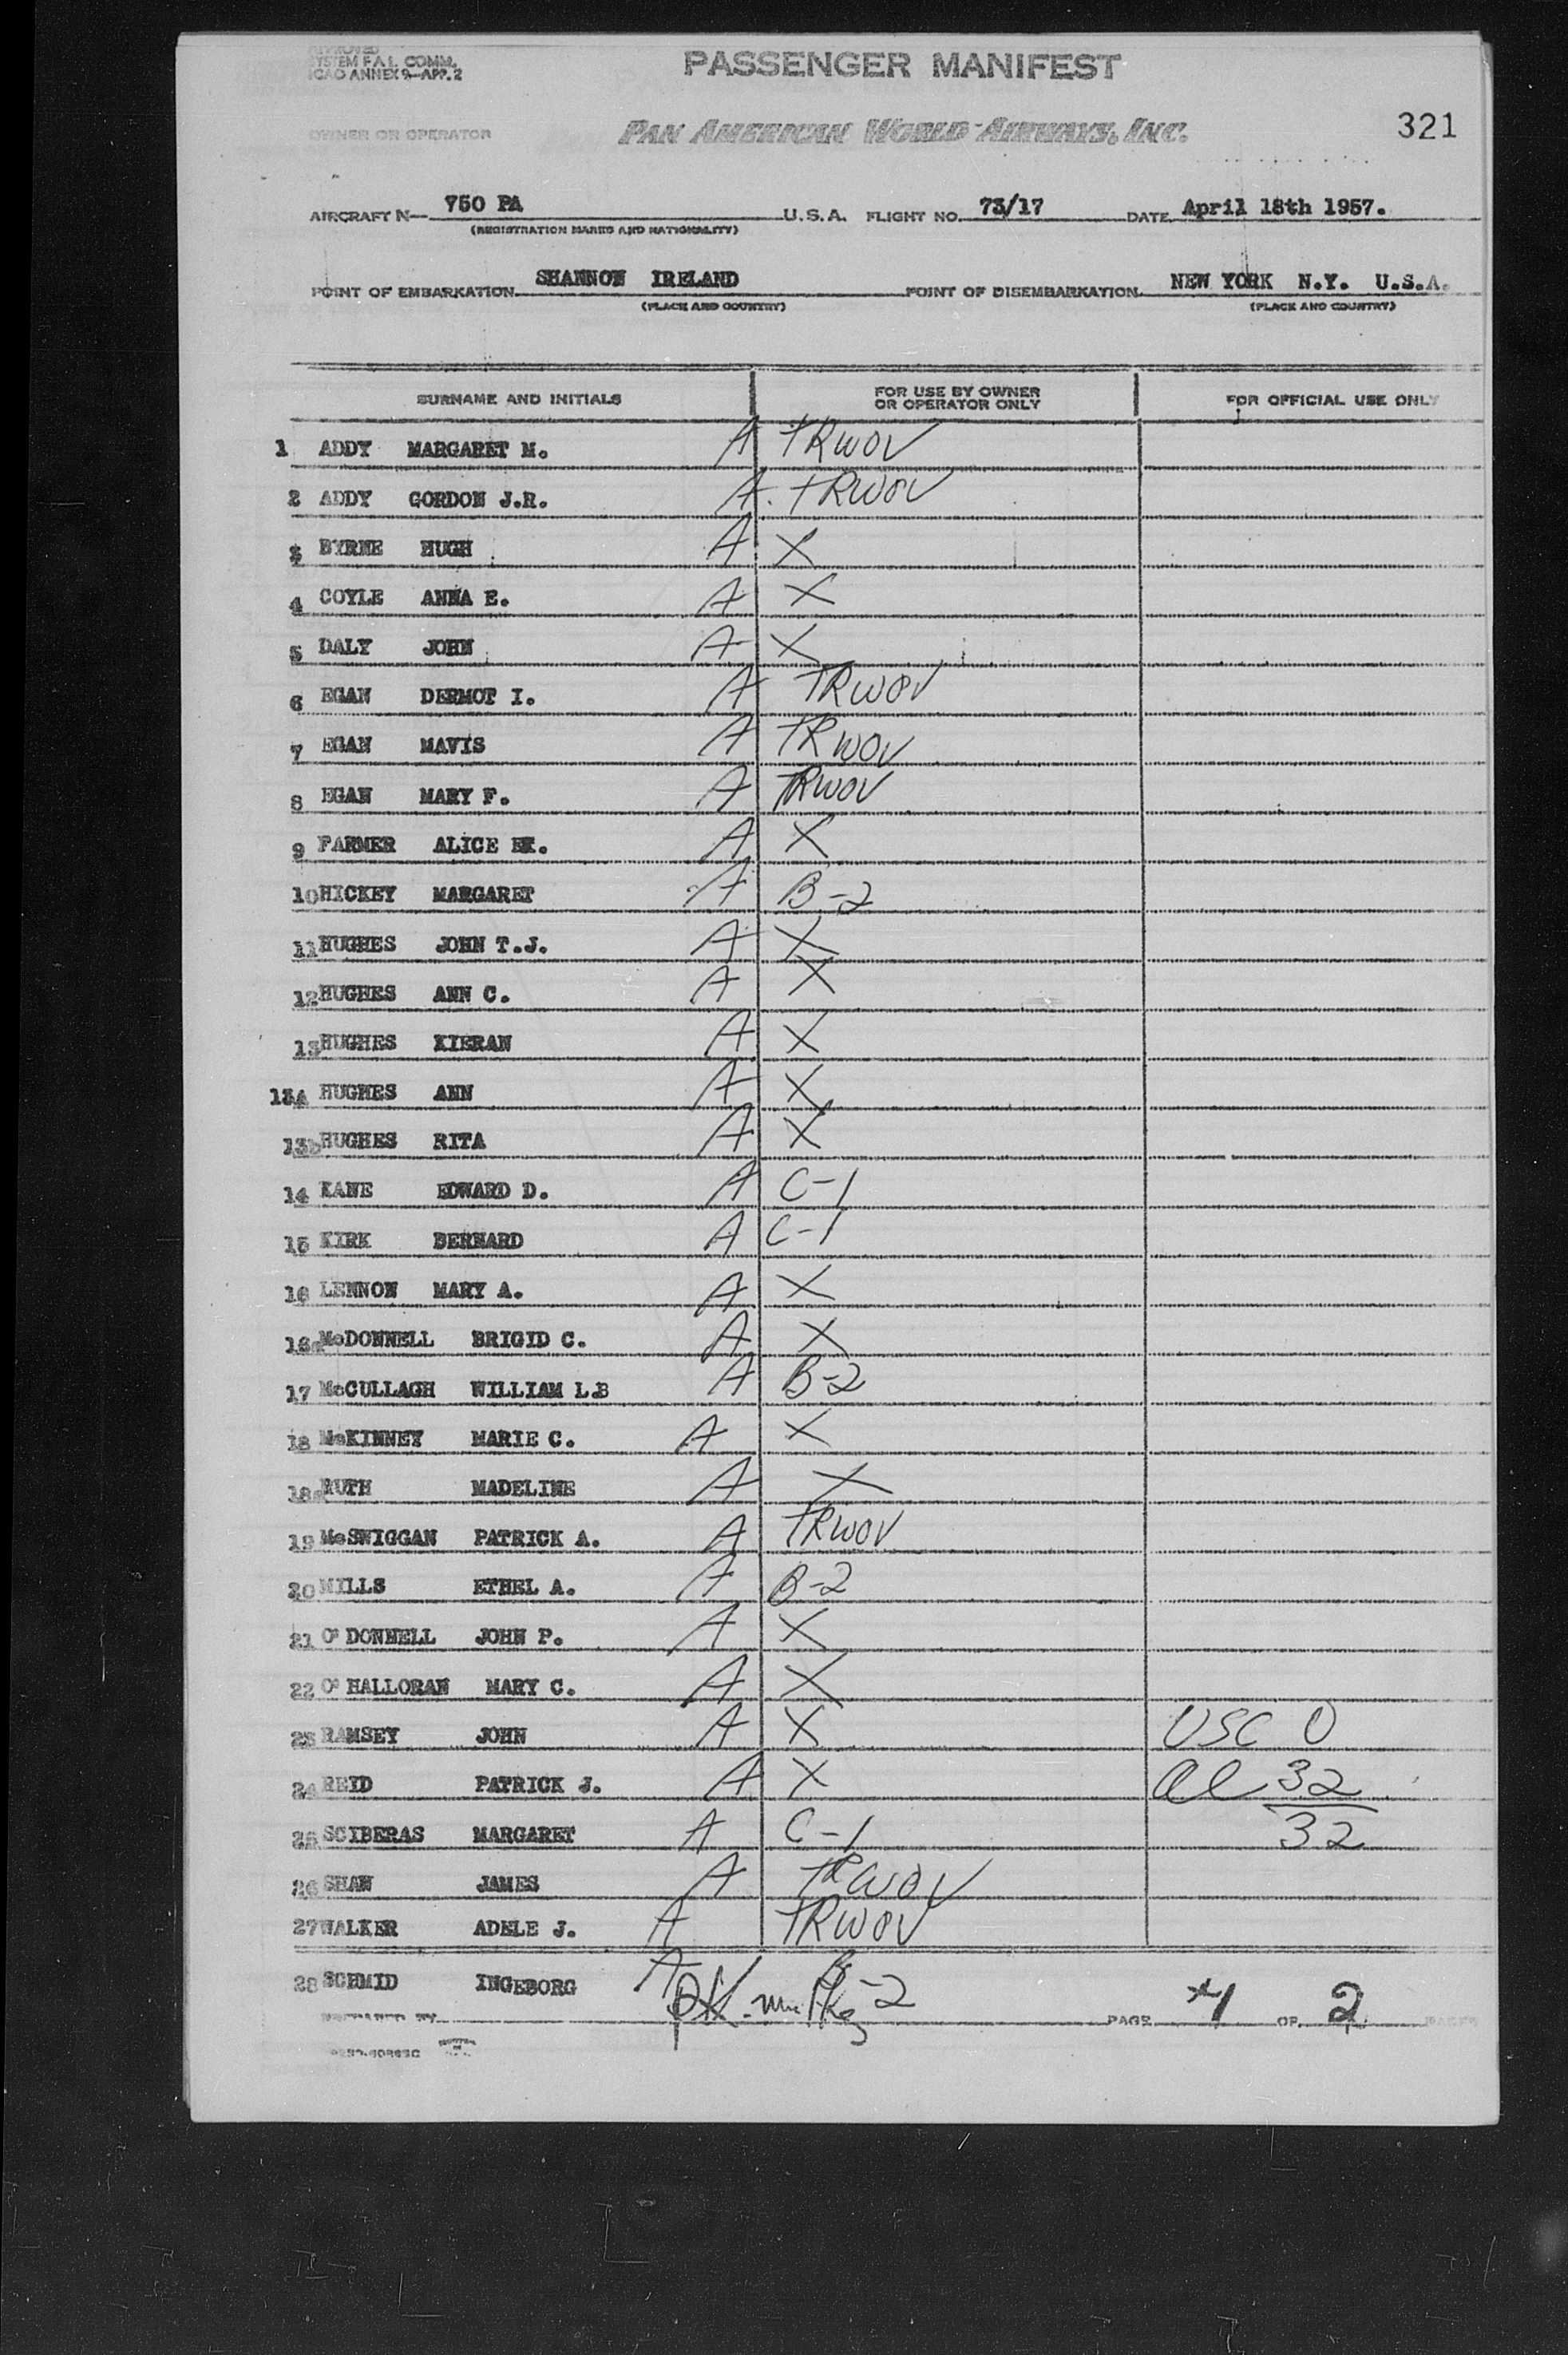 APPROVED
SYSTEM F.A.L. COMM.
ICAO ANNEX 9—APP. 2
PASSENGER MANIFEST
OWNER OR OPERATOR
PAN AMERICAN WORLD AIRWAYS, INC.
321
AIRCRAFT N— 750 PA U.S.A. FLIGHT NO. 73/17 DATE April 18th 1957.
(REGISTRATION MARKS AND NATIONALITY)
POINT OF EMBARKATION SHANNON IRELAND POINT OF DISEMBARKATION NEW YORK N.Y. U.S.A.
(PLACE AND COUNTRY) (PLACE AND COUNTRY)
SURNAME AND INITIALS FOR USE BY OWNER OR OPERATOR ONLY FOR OFFICIAL USE ONLY
1 ADDY MARGARET M. A TRWOV
2 ADDY GORDON J.R. A. TRWOV
3 BYRNE HUGH A X
4 COYLE ANNA E. A X
5 DALY JOHN A X
6 EGAN DERMOT I. A TRWOV
7 EGAN MAVIS A TRWOV
8 EGAN MARY F. A TRWOV
9 FARMER ALICE A X
10 HICKEY MARGARET A B-2
11 HUGHES JOHN T.J. A X
12 HUGHES ANN C. A X
13 HUGHES KIERAN A X
13A HUGHES ANN A X
13b HUGHES RITA A X
14 KANE EDWARD D. A C-1
15 KIRK BERNARD A C-1
16 LENNON MARY A. A X
16a McDONNELL BRIGID C. A X
17 McCULLAGH WILLIAM L.B A B-2
18 McKINNEY MARIE C. A X
18a RUTH MADELINE A X
19 McSWIGGAN PATRICK A. A TRWOV
20 MILLS ETHEL A. A B-2
21 O'DONNELL JOHN P. A X
22 O'HALLORAN MARY C. A X
23 RAMSEY JOHN A X USC 0
24 REID PATRICK J. A X al 32
25 SCIBERAS MARGARET A C-1 32
26 SHAW JAMES A TRWOV
27 WALKER ADELE J. A TRWOV
28 SCHMID INGEBORG A B-2
PREPARED BY PAGE 1 OF 2 PAGES